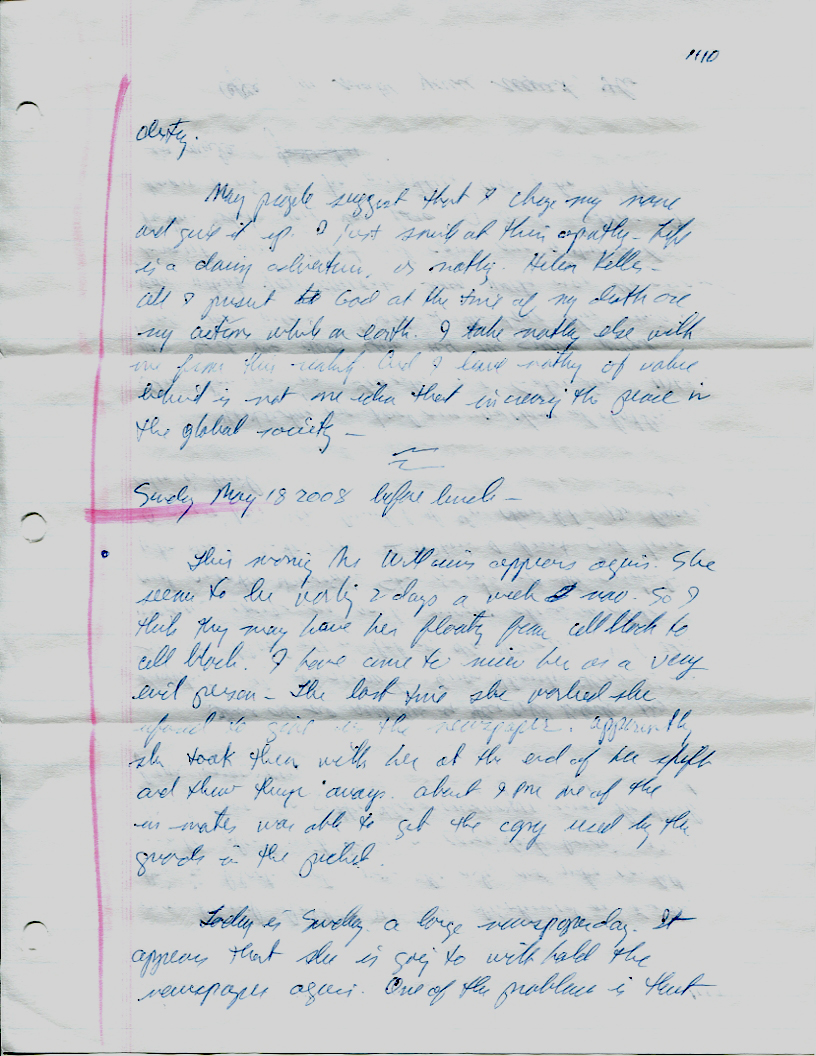 1410
May people suggest that I change my name
and give it up. I just smile at their apathy - Life
is a daring adventure, or nothing. Helen Keller -
all I present to God at the time of my death are
my actions while on earth. I take nothing else with
me from this world. And I leave nothing of value
behind is not one idea that increases the peace in
the global society -
Sunday May 18 2008 before lunch -
This morning Ms Williams appears again. She
seems to be working 2 days a week now. So I
think they may have her floating from cell block to
cell block. I have come to view her as a very
evil person - The last time she worked she
refused to give us the newspaper. Apparently
she took them with her at the end of her shift
and threw them away. about 1 PM one of the
in mates was able to get the copy used by the
guards in the
Today is Sunday a large newspaper day. It
appears that she is going to with hold the
newspaper again. One of the problems is that